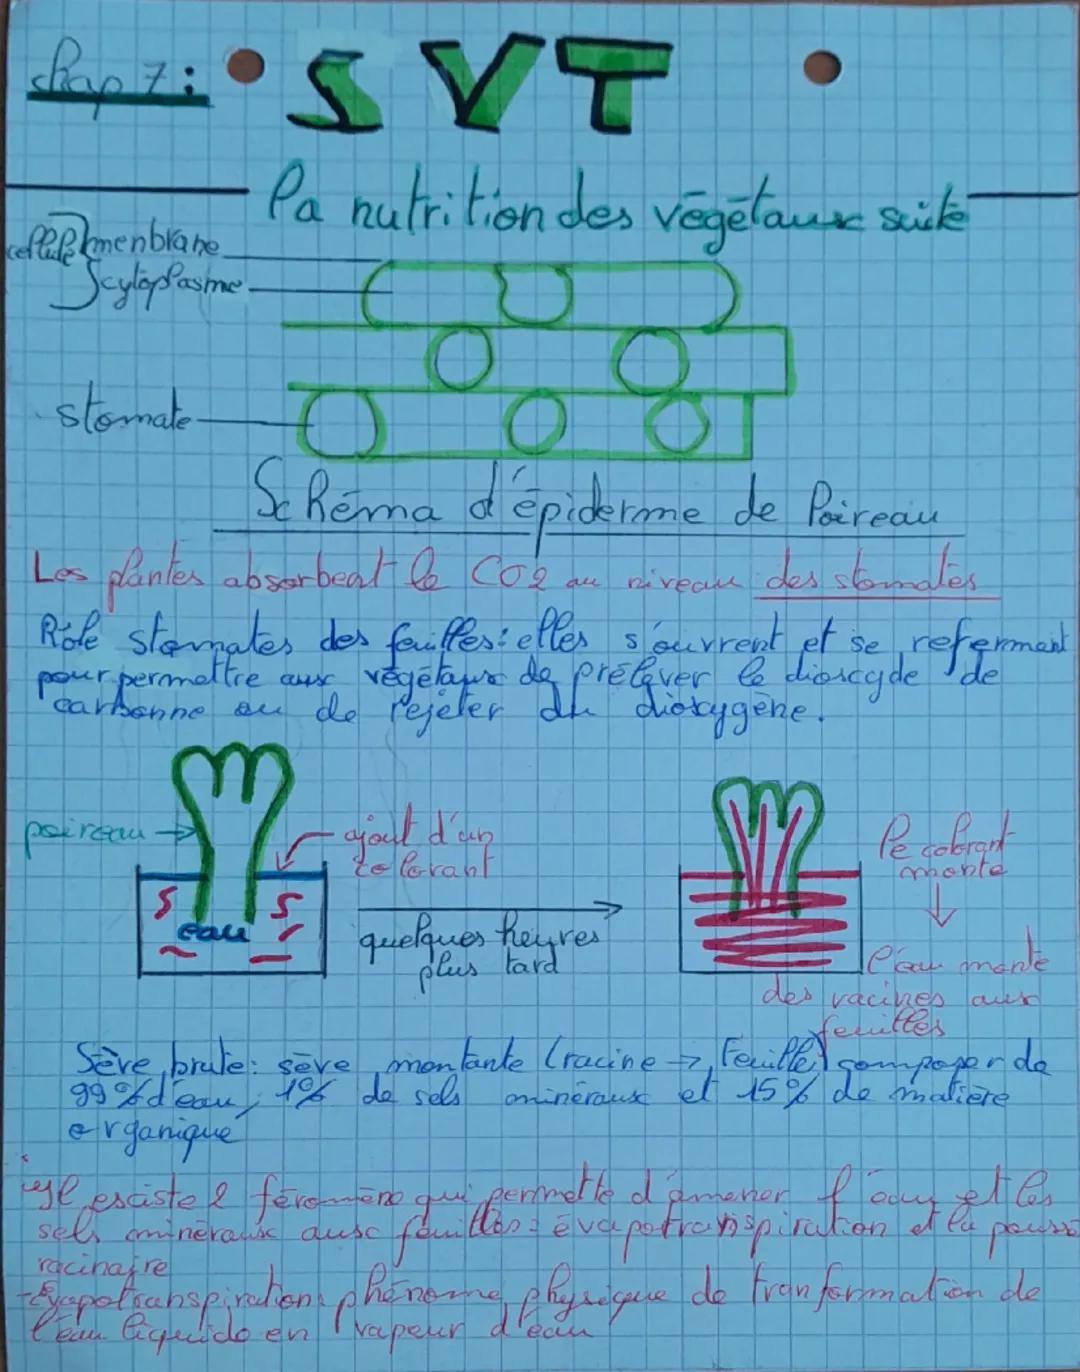 chap 7 : SVT
La nutrition des végétaux suite
cellule menbrane
cytoplasme
stomate
Schéma d'épiderme de Poireau
Les plantes absorbent le CO2 au niveau des stomates
Rôle stomates des feuilles : elles s'ouvrent et se referment
pour permettre aux végétaux de prélever le dioxcyde de
carbonne ou de rejeter du dioxygène.
poireau
ajout d'un
colorant
eau
quelques heures
plus tard
le colorant
monte
l'eau monte
des racines aux
feuilles
Sève brute : sève montante (racine → Feuille) composer de
99% d'eau, 1% de sels minéraux et 15% de matière
organique
Il esciste 2 féromène qui permette d'amener l'eau et les
sels minéraux aux feuilles : évapotranspiration et la poussé
racinaire
-Evapotranspiration : phénome physique de tranformation de
l'eau liquide en vapeur d'eau